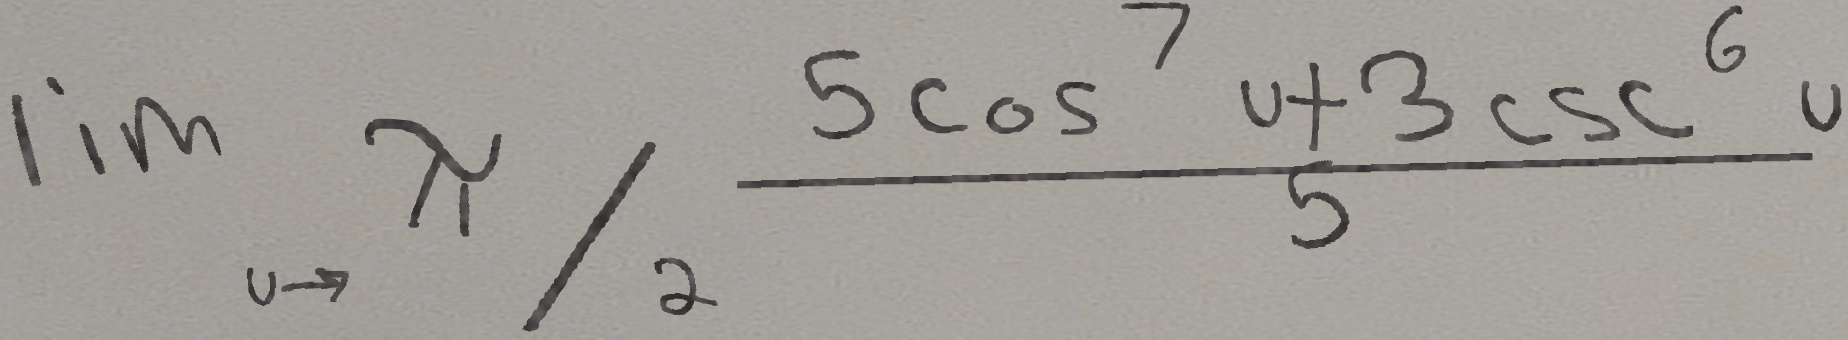 lim u→ π/2 5cos^7 u+3csc^6 u / 5